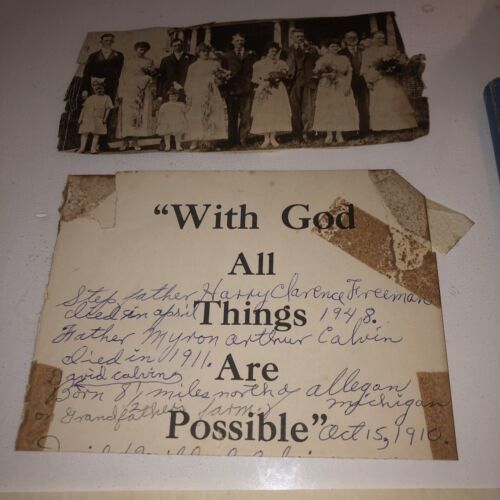 “With God
All
Things
Are
Possible”
Step father Harry Clarence Freeman
died in april 1948.
Father Myron arthur Calvin
died in 1911.
born 8½ miles north of allegan
michigan
on Grandfather's farm,
Oct 15, 1910.